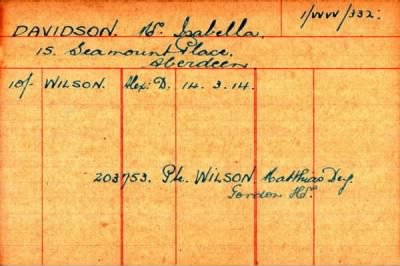 1/WW/332.
DAVIDSON. Mrs. Isabella.
15. Seamount Place.
Aberdeen
10/- WILSON. Alex: D. 14. 3. 14.
203753. Pte. WILSON Matthias Dey.
Gordon Hrs.